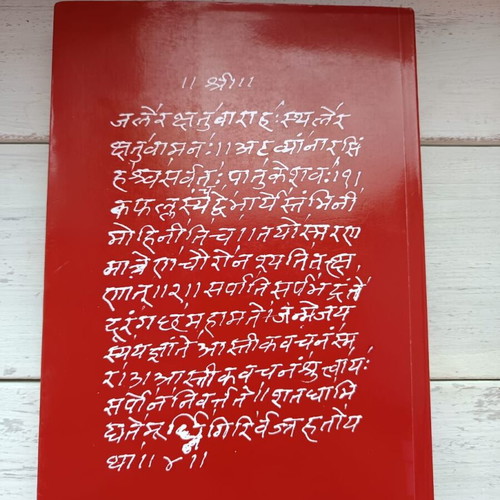 ॥ श्री ॥
जले र क्षतु वाराहः स्थले र
क्षतु वामनः ॥ अटव्यां नारसिं
हश्च सर्वतः पातु केशवः ॥१।
कफल्लस्य द्वे भार्ये स्तंभिनी
मोहिनी ति च ॥ तयोस्मरण
मात्रेण चौरो न श्यति तत्क्ष
णात् ॥२॥ सर्पाति सर्प भद्रंते
दूरंगछ महामते । जन्मेजय
स्य यज्ञांते आस्तीक वचनं स्म
र ।३। आस्तीक वचनं श्रुत्वा यः
सर्पो न निवर्त्तते ॥ शतधा भि
द्यते मूर्ध्नि गिरिर्वज्रहतो य
था ॥ ४ ॥